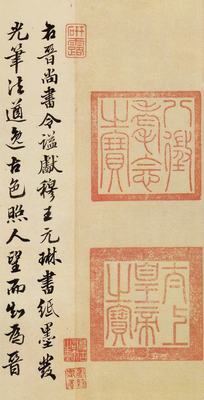 八徵
耄念
之寶
太上
皇帝
之寶
右晉尚書令諡獻穆王元琳書紙墨發
光筆法遒逸古色照人望而知為晉